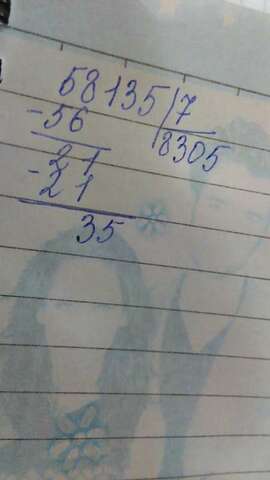 58135 7
-56 8305
21
-21
35